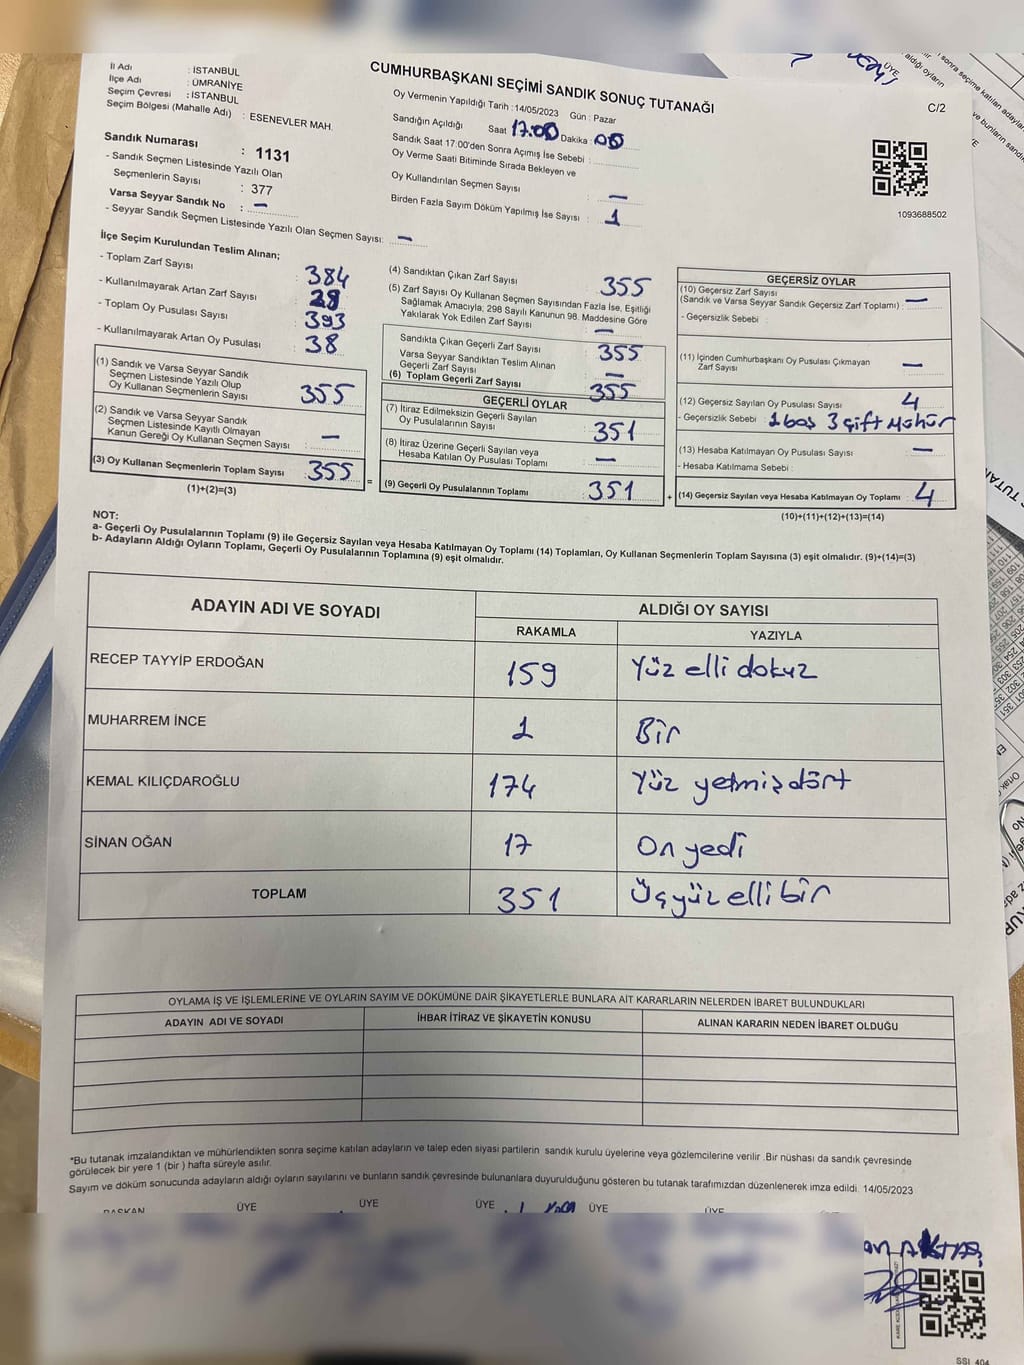 İl Adı : İSTANBUL
İlçe Adı : ÜMRANİYE
Seçim Çevresi : İSTANBUL
Seçim Bölgesi (Mahalle Adı) : ESENEVLER MAH.
CUMHURBAŞKANI SEÇİMİ SANDIK SONUÇ TUTANAĞI
C/2
Oy Vermenin Yapıldığı Tarih : 14/05/2023 Gün : Pazar
Sandığın Açıldığı Saat 17:00 Dakika : 00
Sandık Saat 17.00'den Sonra Açımış İse Sebebi :
Oy Verme Saati Bitiminde Sırada Bekleyen ve
Oy Kullandırılan Seçmen Sayısı : —
Birden Fazla Sayım Döküm Yapılmış İse Sayısı : 1
1093688502
Sandık Numarası : 1131
- Sandık Seçmen Listesinde Yazılı Olan
Seçmenlerin Sayısı : 377
Varsa Seyyar Sandık No : —
- Seyyar Sandık Seçmen Listesinde Yazılı Olan Seçmen Sayısı: —
İlçe Seçim Kurulundan Teslim Alınan;
- Toplam Zarf Sayısı : 384
- Kullanılmayarak Artan Zarf Sayısı : 29
- Toplam Oy Pusulası Sayısı : 393
- Kullanılmayarak Artan Oy Pusulası : 38
(1) Sandık ve Varsa Seyyar Sandık
Seçmen Listesinde Yazılı Olup
Oy Kullanan Seçmenlerin Sayısı : 355
(2) Sandık ve Varsa Seyyar Sandık
Seçmen Listesinde Kayıtlı Olmayan
Kanun Gereği Oy Kullanan Seçmen Sayısı : —
(3) Oy Kullanan Seçmenlerin Toplam Sayısı : 355
(1)+(2)=(3)
=
(4) Sandıktan Çıkan Zarf Sayısı : 355
(5) Zarf Sayısı Oy Kullanan Seçmen Sayısından Fazla İse, Eşitliği
Sağlamak Amacıyla; 298 Sayılı Kanunun 98. Maddesine Göre
Yakılarak Yok Edilen Zarf Sayısı : —
Sandıkta Çıkan Geçerli Zarf Sayısı : 355
Varsa Seyyar Sandıktan Teslim Alınan
Geçerli Zarf Sayısı : —
(6) Toplam Geçerli Zarf Sayısı : 355
GEÇERLİ OYLAR
(7) İtiraz Edilmeksizin Geçerli Sayılan
Oy Pusulalarının Sayısı : 351
(8) İtiraz Üzerine Geçerli Sayılan veya
Hesaba Katılan Oy Pusulası Toplamı : —
(9) Geçerli Oy Pusulalarının Toplamı : 351
+
GEÇERSİZ OYLAR
(10) Geçersiz Zarf Sayısı
(Sandık ve Varsa Seyyar Sandık Geçersiz Zarf Toplamı) : —
- Geçersizlik Sebebi :
(11) İçinden Cumhurbaşkanı Oy Pusulası Çıkmayan
Zarf Sayısı : —
(12) Geçersiz Sayılan Oy Pusulası Sayısı : 4
- Geçersizlik Sebebi : 1 boş 3 çift Mühür
(13) Hesaba Katılmayan Oy Pusulası Sayısı : —
- Hesaba Katılmama Sebebi :
(14) Geçersiz Sayılan veya Hesaba Katılmayan Oy Toplamı : 4
(10)+(11)+(12)+(13)=(14)
NOT:
a- Geçerli Oy Pusulalarının Toplamı (9) ile Geçersiz Sayılan veya Hesaba Katılmayan Oy Toplamı (14) Toplamları, Oy Kullanan Seçmenlerin Toplam Sayısına (3) eşit olmalıdır. (9)+(14)=(3)
b- Adayların Aldığı Oyların Toplamı, Geçerli Oy Pusulalarının Toplamına (9) eşit olmalıdır.
ADAYIN ADI VE SOYADI ALDIĞI OY SAYISI
RAKAMLA YAZIYLA
RECEP TAYYİP ERDOĞAN 159 Yüz elli dokuz
MUHARREM İNCE 1 Bir
KEMAL KILIÇDAROĞLU 174 Yüz yetmiş dört
SİNAN OĞAN 17 On yedi
TOPLAM 351 Üçyüz elli bir
OYLAMA İŞ VE İŞLEMLERİNE VE OYLARIN SAYIM VE DÖKÜMÜNE DAİR ŞİKAYETLERLE BUNLARA AİT KARARLARIN NELERDEN İBARET BULUNDUKLARI
ADAYIN ADI VE SOYADI İHBAR İTİRAZ VE ŞİKAYETİN KONUSU ALINAN KARARIN NEDEN İBARET OLDUĞU
*Bu tutanak imzalandıktan ve mühürlendikten sonra seçime katılan adayların ve talep eden siyasi partilerin sandık kurulu üyelerine veya gözlemcilerine verilir .Bir nüshası da sandık çevresinde
görülecek bir yere 1 (bir ) hafta süreyle asılır.
Sayım ve döküm sonucunda adayların aldığı oyların sayılarını ve bunların sandık çevresinde bulunanlara duyurulduğunu gösteren bu tutanak tarafımızdan düzenlenerek imza edildi. 14/05/2023
BAŞKAN ÜYE ÜYE ÜYE ÜYE ÜYE
AKTAŞ
SSI 404